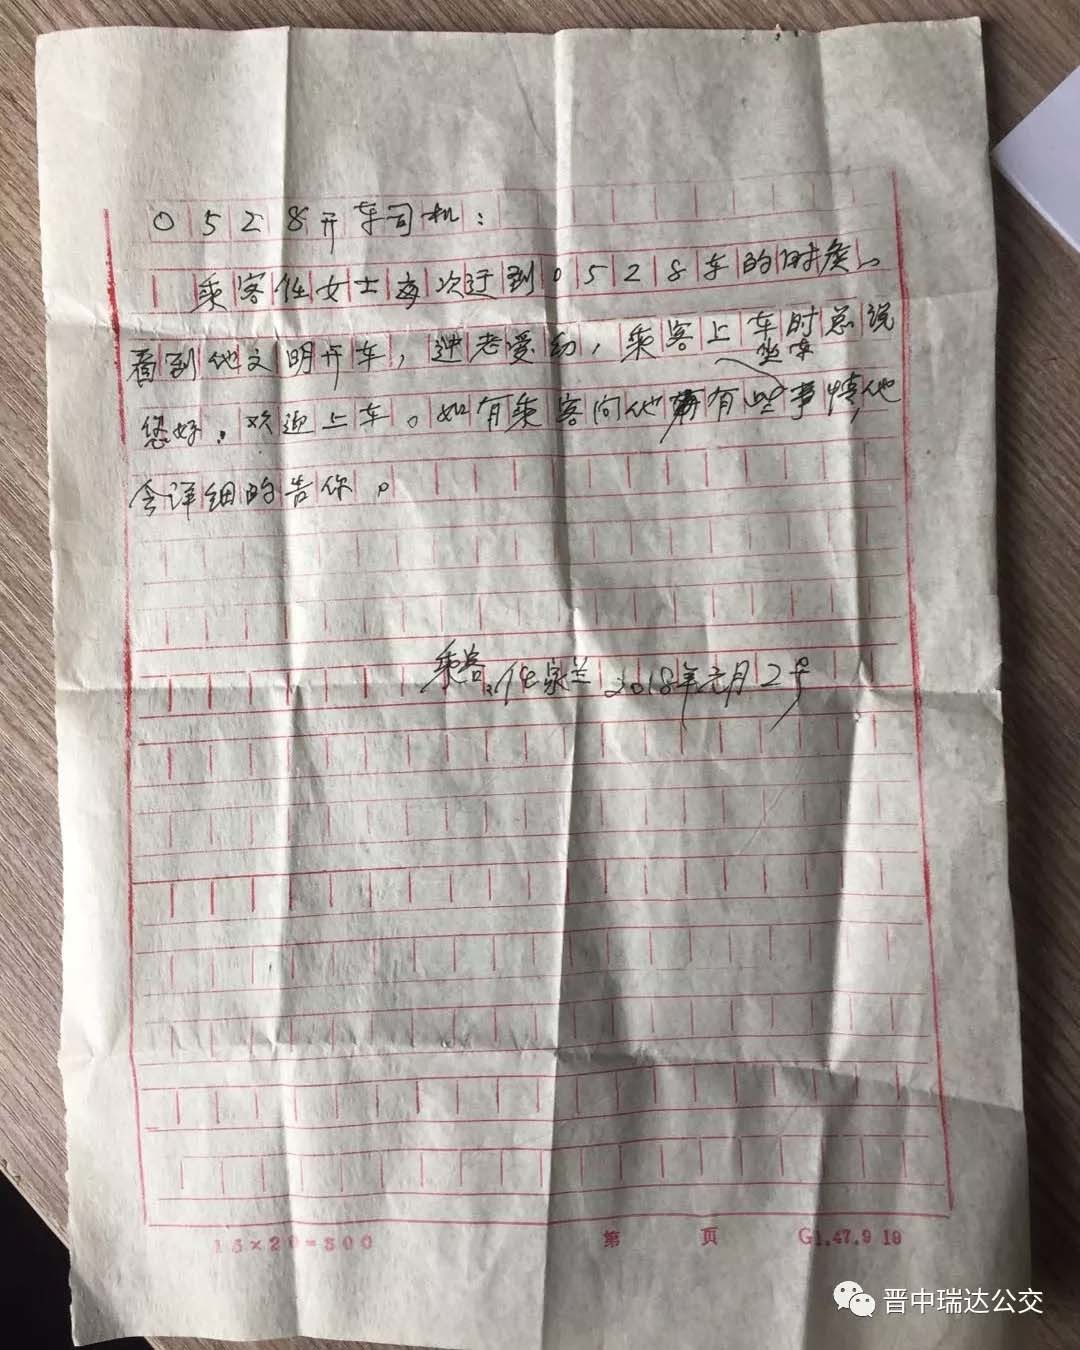 0528开车司机：
乘客任女士每次迂到0528车的时候。
看到他文明开车，进老爱幼，乘客上车时总说
坐车
您好，欢迎上车。如有乘客问他有些事情他
会详细的告你。
乘客：任家兰 2018年元月2号
15×20=300 第 页 G1.47.9 19
晋中瑞达公交